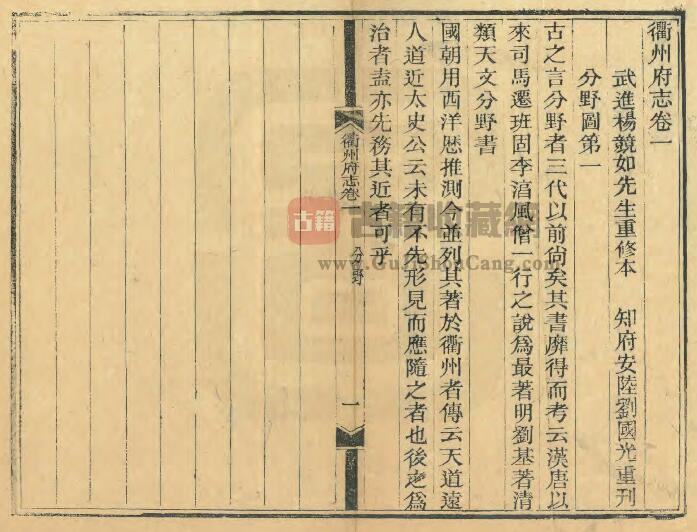 衢州府志卷一
武進楊競如先生重修本　知府安陸劉國光重刊
分野圖第一
古之言分野者三代以前尙矣其書靡得而考云漢唐以
來司馬遷班固李淳風僧一行之說爲最著明劉基著清
類天文分野書
國朝用西洋歷推測今並列其著於衢州者傳云天道遠
人道近太史公云未有不先形見而應隨之者也後之爲
治者盍亦先務其近者可乎
衢州府志卷一
分野
一
古籍
古籍收藏網
www.GujiShouCang.com